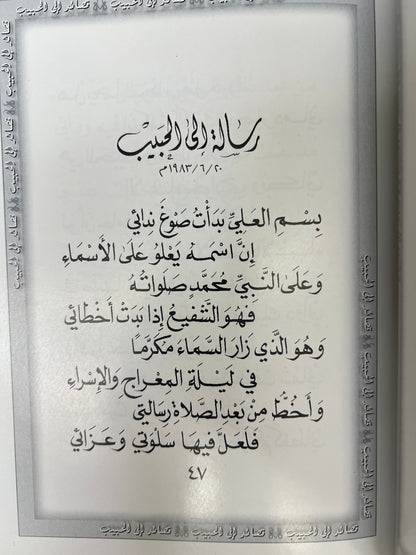 قصائد إلى الحبيب قصائد إلى الحبيب قصائد إلى الحبيب
رسالة إلى الحبيب
٢٠/٦/١٩٨٣م
بِسْمِ العَلِيِّ بَدَأْتُ صَوْغَ نِدَائِي
إِنَّ اسْمَهُ يَعْلُو عَلَى الأَسْمَاءِ
وَعَلَى النَّبِيِّ مُحَمَّدٍ صَلَوَاتُهُ
فَهُوَ الشَّفِيعُ إِذَا بَدَتْ أَخْطَائِي
وَهُوَ الَّذِي زَارَ السَّمَاءَ مُكَرَّمًا
فِي لَيْلَةِ المِعْرَاجِ وَالإِسْرَاءِ
وَأَخُطُّ مِنْ بَعْدِ الصَّلَاةِ رِسَالَتِي
فَلَعَلَّ فِيهَا سَلْوَتِي وَعَزَائِي
٤٧
قصائد إلى الحبيب قصائد إلى الحبيب قصائد إلى الحبيب